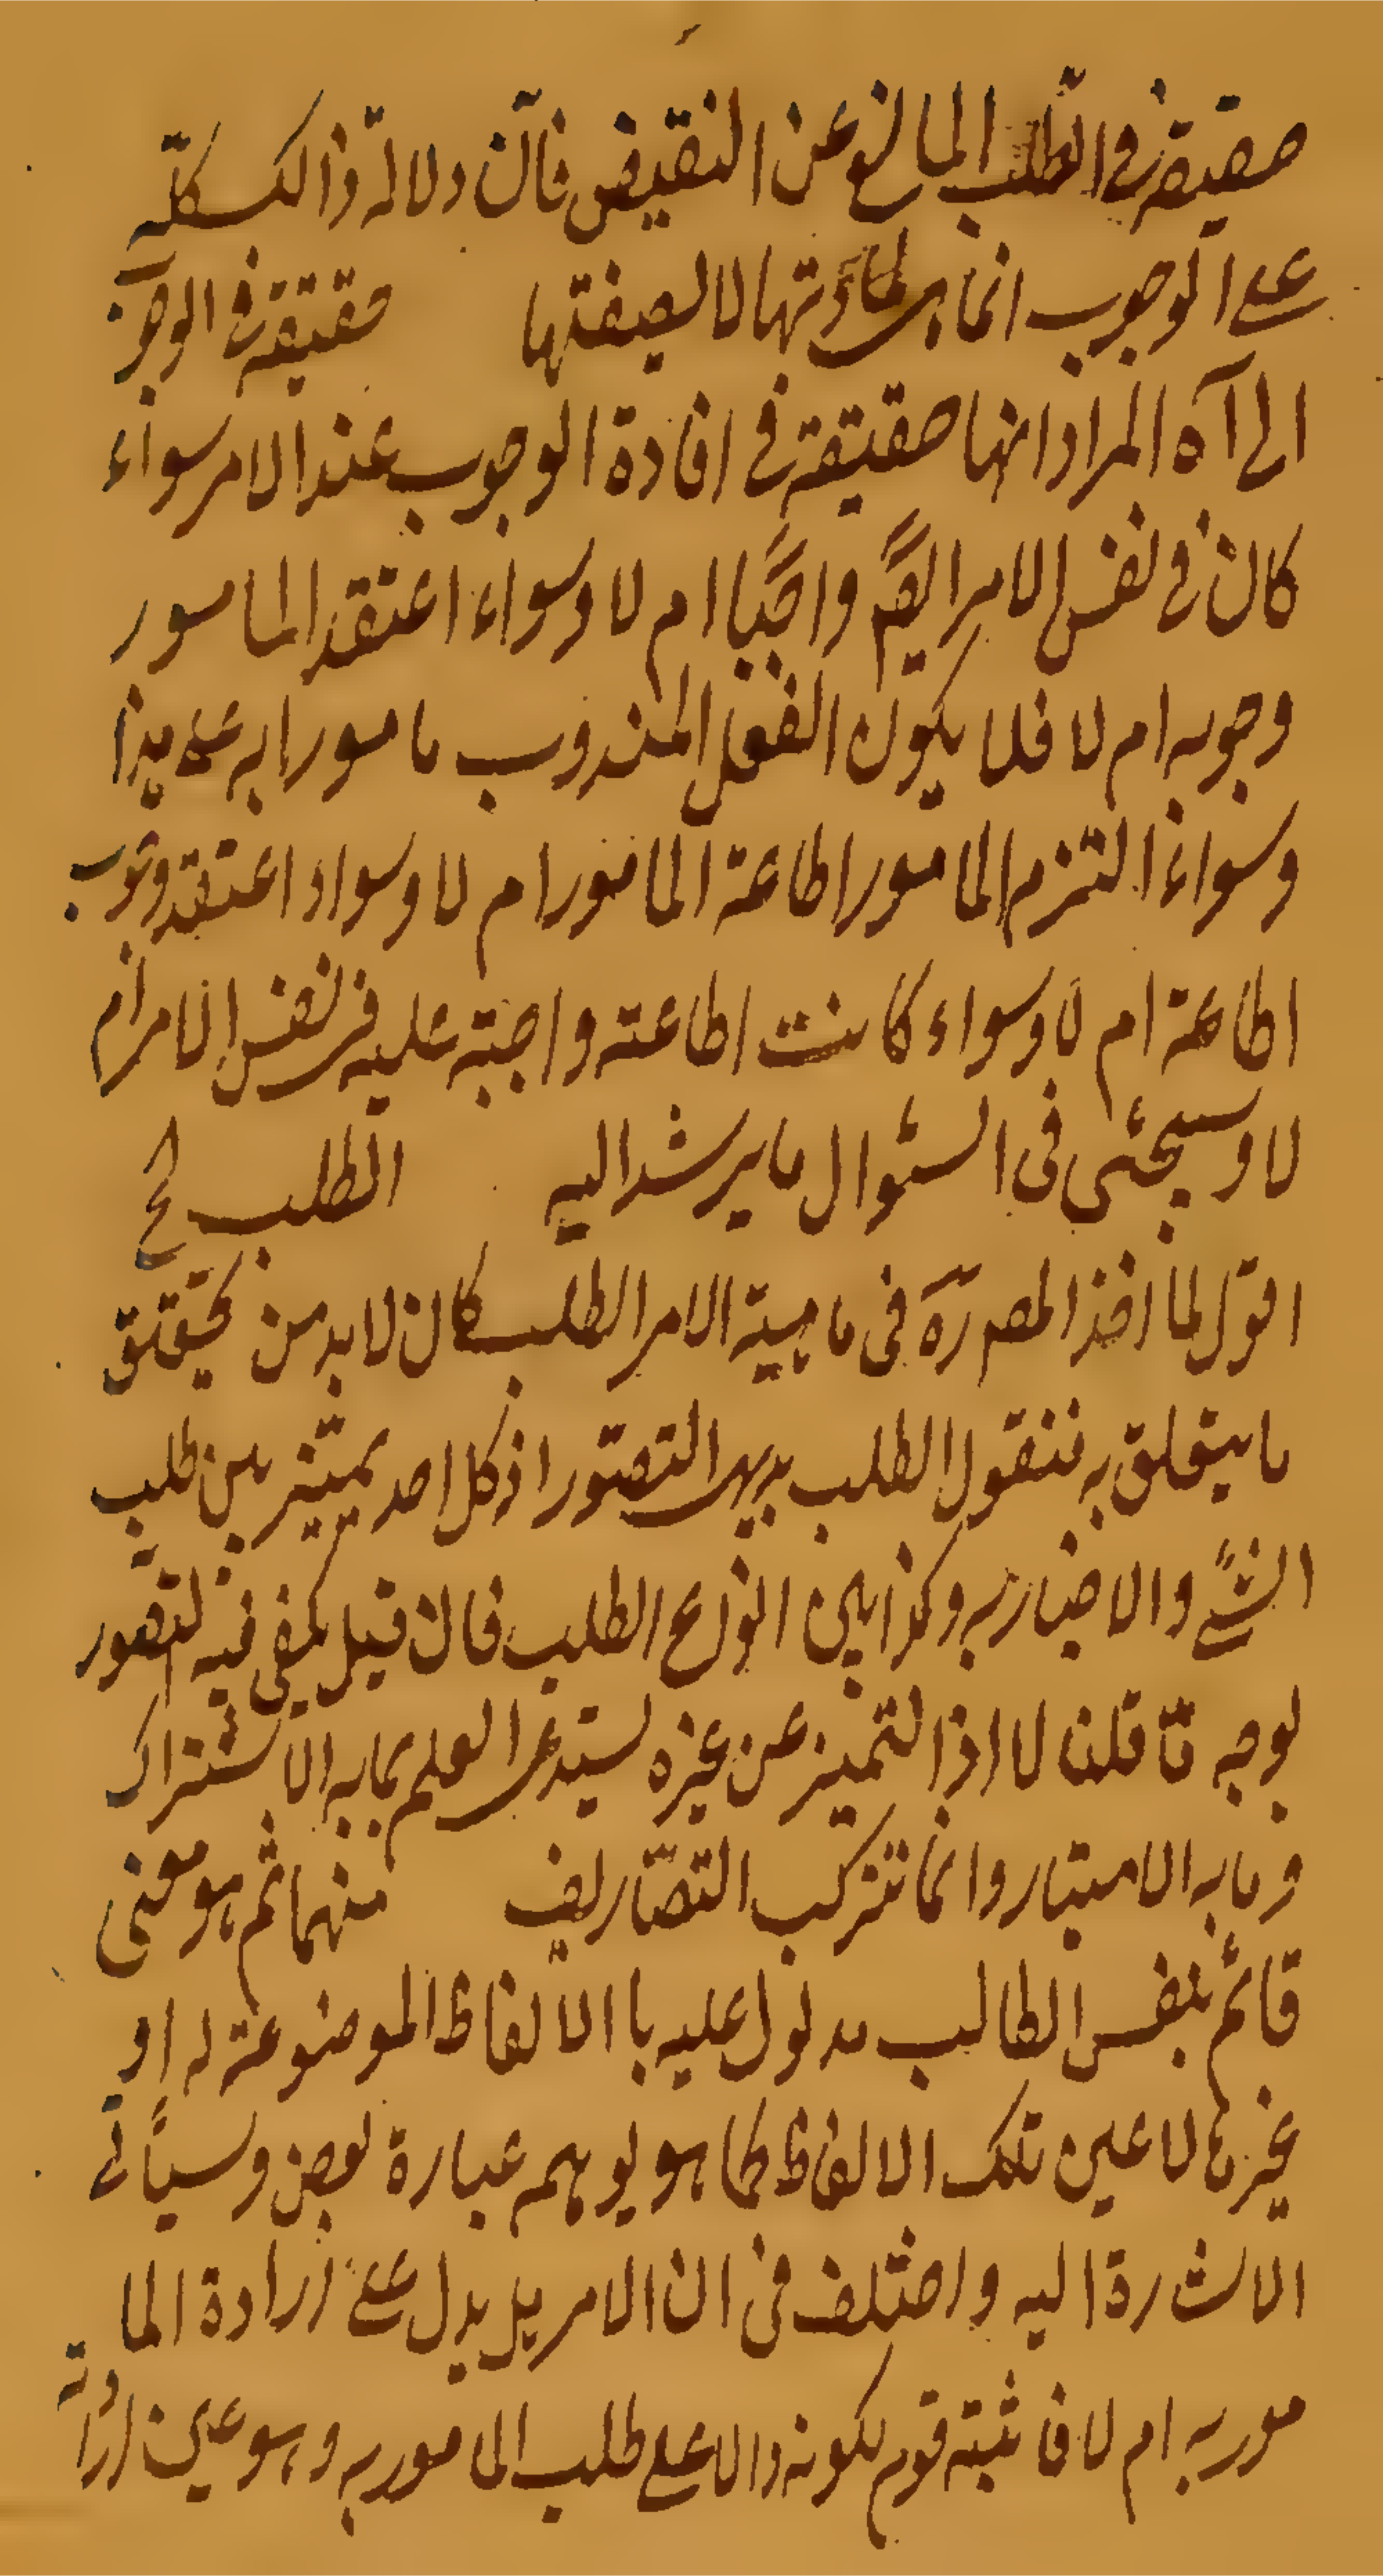 حقيقة في الطلب المانع عن النقيض فانّ دلالة ذالك كلّه
على الوجوب انما بمادّتها لا لصيغتها حقيقة في الوجو
الى آه المراد انها حقيقة في افادة الوجوب عند الامر سواء
كان في نفس الامر ايضًا واجبًا ام لا وسواء اعتقد المامور
وجوبه ام لا فلا يكون الفعل المندوب مامورا به على هذا
وسواء التزم المامور اطاعة المامور ام لا وسواء اعتقد وجوب
اطاعة ام لا وسواء كانت اطاعته واجبة عليه في نفس الامر ام
لا وسيجئى فى السئوال ما يرشد اليه الطلب الخ
اقول لما اخذ المصـ ره فى ماهية الامر الطلب كان لا بد من تحقيق
ما يتعلق به فنقول الطلب بديهى التصّور اذ كل احد يميّز بين طلب
الشئ والاخبار به وكذا بين انواع الطلب فان قيل يكفى فيه التصور
بوجه مّا قلنا لا اذ التميز عن غيره يستدعى العلم بما به الاشتراك
وما به الامتيار وانما تتركب التصّاريف منهما ثم هو معنى
قائم بنفس الطالب مدلول عليه با الالفاظ الموضوعة له او
غيرها لا عين تلك الالفاظ كما هو يوهم عبارة بعض وسيأتى
الاشارة اليه واختلف في ان الامر هل يدل على ارادة الما
مور به ام لا فاثبته قوم لكونه دالا على طلب المامور به وهو عين ارادته